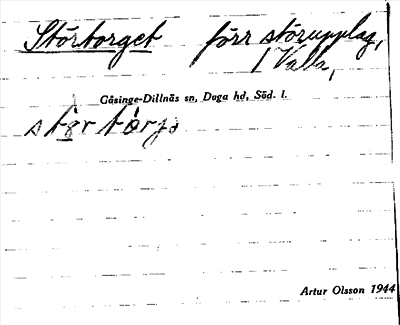 Störtorget förr störupplag,
1 Valla,
Gåsinge-Dillnäs sn, Daga hd, Söd. l.
Artur Olsson 1944